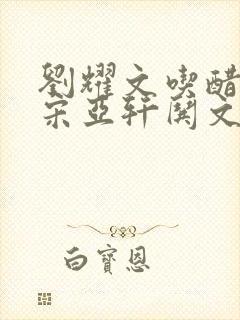 劉耀文喫醋
宋亞軒鬨文
白寶恩